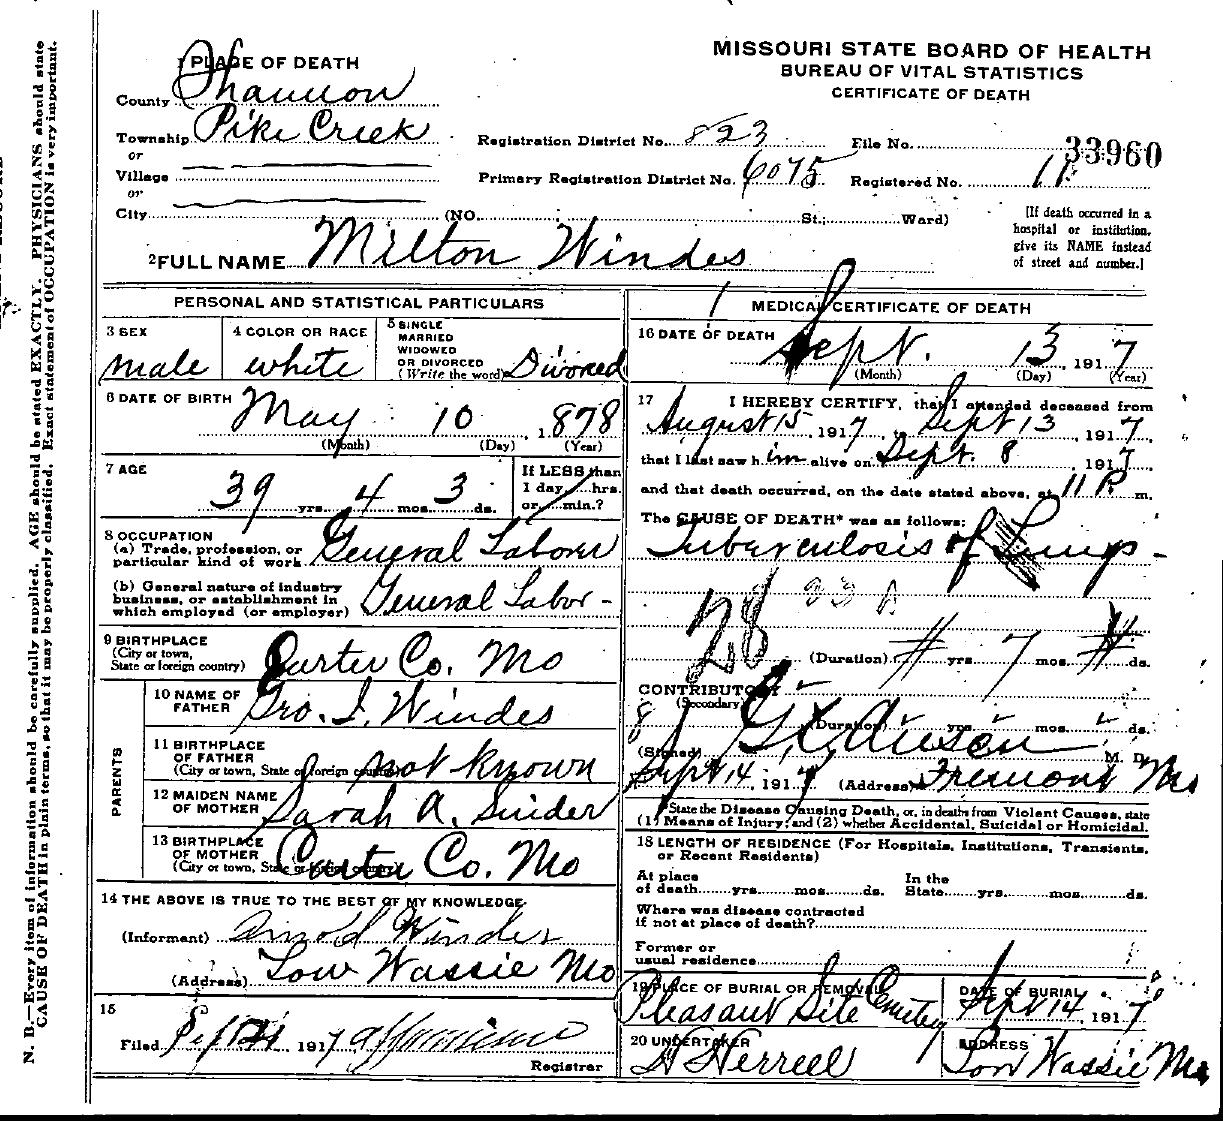 MISSOURI STATE BOARD OF HEALTH
BUREAU OF VITAL STATISTICS
CERTIFICATE OF DEATH
1 PLACE OF DEATH
County Shannon
Township Pike Creek
or
Village
or
City (NO. St.; Ward)
Registration District No. 823
File No. 33960
Primary Registration District No. 6075
Registered No. 11
[If death occurred in a
hospital or institution,
give its NAME instead
of street and number.]
2 FULL NAME Milton Windes
PERSONAL AND STATISTICAL PARTICULARS
3 SEX
male
4 COLOR OR RACE
white
5 SINGLE
MARRIED
WIDOWED
OR DIVORCED
(Write the word) Divorced
6 DATE OF BIRTH
May 10, 1878
(Month) (Day) (Year)
7 AGE
39 yrs. 4 mos. 3 ds.
If LESS than
1 day, hrs.
or min.?
8 OCCUPATION
(a) Trade, profession, or
particular kind of work General Laborer
(b) General nature of industry
business, or establishment in
which employed (or employer) General Labor-
9 BIRTHPLACE
(City or town,
State or foreign country) Carter Co. Mo
PARENTS
10 NAME OF
FATHER Geo. I. Windes
11 BIRTHPLACE
OF FATHER
(City or town, State or foreign country) not known
12 MAIDEN NAME
OF MOTHER Sarah A. Snider
13 BIRTHPLACE
OF MOTHER
(City or town, State or foreign country) Carter Co. Mo
14 THE ABOVE IS TRUE TO THE BEST OF MY KNOWLEDGE
(Informant) Arnold Windes
(Address) Low Wassie Mo
15
Filed Sept 1917
Registrar
MEDICAL CERTIFICATE OF DEATH
16 DATE OF DEATH
Sept. 13, 1917
(Month) (Day) (Year)
17 I HEREBY CERTIFY, that I attended deceased from
August 15, 1917, Sept 13, 1917,
that I last saw him alive on Sept. 8, 1917,
and that death occurred, on the date stated above, at 11 P. m.
The CAUSE OF DEATH* was as follows:
Tuberculosis of Lungs-
28 23 A
(Duration) yrs. 7 mos. ds.
CONTRIBUTORY
(Secondary)
8 (Duration) yrs. mos. ds.
(Signed) M. D.
Sept 14, 1917 (Address) Fremont Mo
*State the Disease Causing Death, or, in deaths from Violent Causes, state
(1) Means of Injury; and (2) whether Accidental, Suicidal or Homicidal.
18 LENGTH OF RESIDENCE (For Hospitals, Institutions, Transients,
or Recent Residents)
At place
of death yrs. mos. ds.
In the
State yrs. mos. ds.
Where was disease contracted
if not at place of death?
Former or
usual residence
19 PLACE OF BURIAL OR REMOVAL
Pleasant Site Cemetery
DATE OF BURIAL
Sept 14, 1917
20 UNDERTAKER
Herrell
ADDRESS
Low Wassie Mo
N. B.—Every item of information should be carefully supplied. AGE should be stated EXACTLY. PHYSICIANS should state
CAUSE OF DEATH in plain terms, so that it may be properly classified. Exact statement of OCCUPATION is very important.